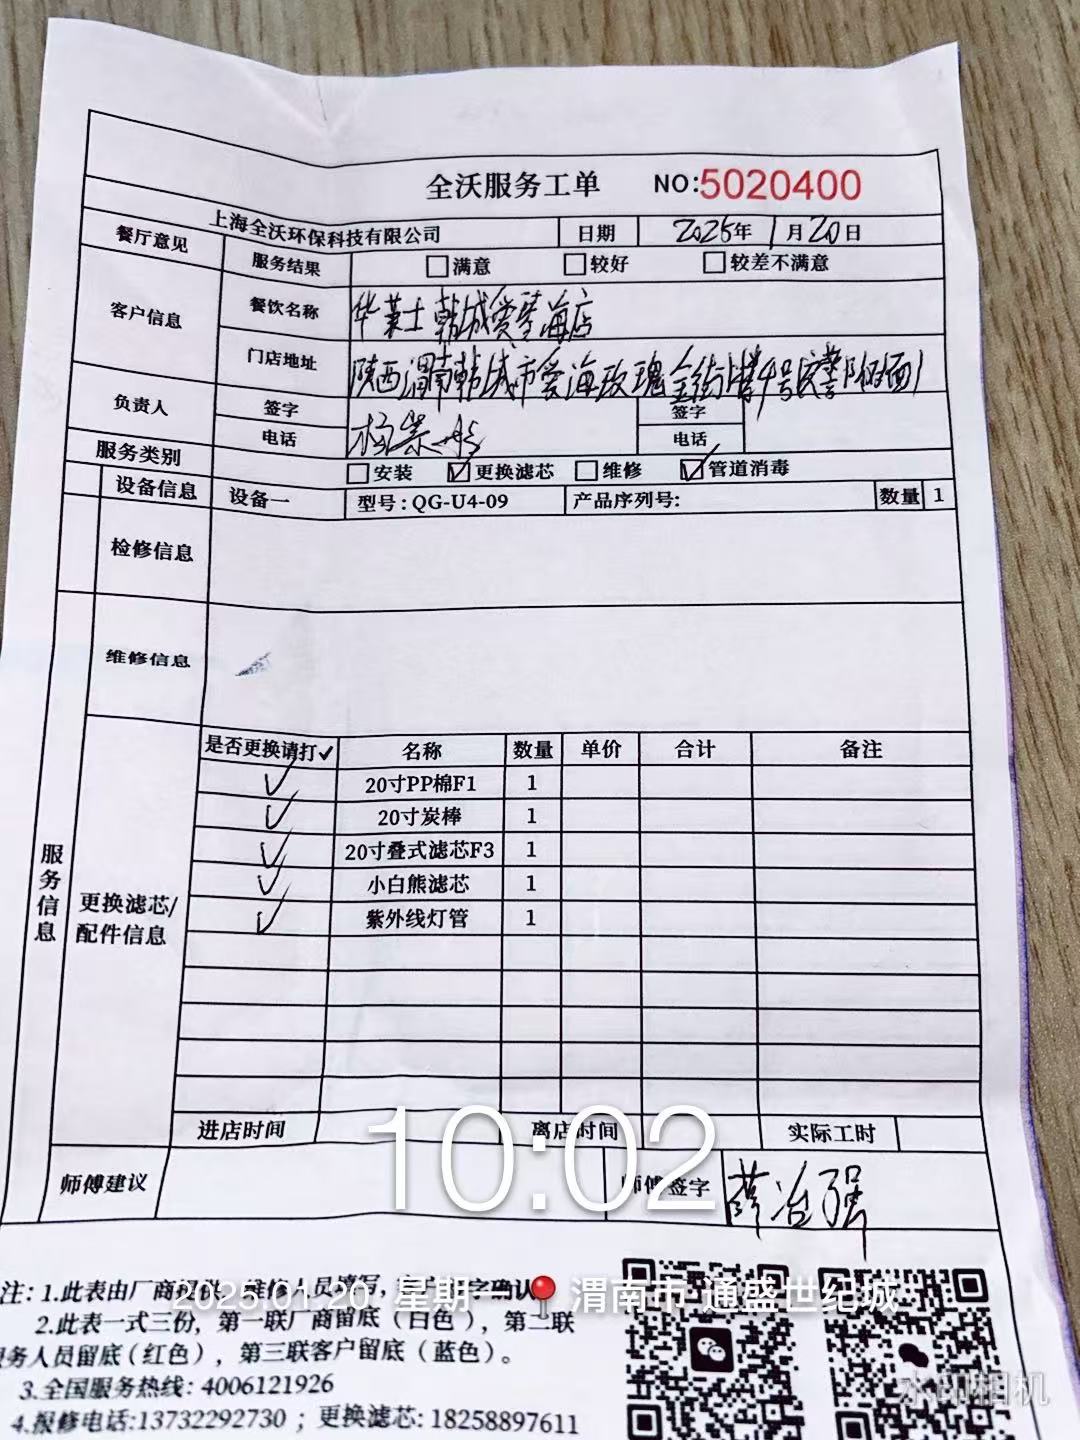 全沃服务工单 NO:5020400
上海全沃环保科技有限公司 日期 2025年1月20日
餐厅意见 服务结果 满意 较好 较差不满意
客户信息 餐饮名称 华莱士韩城爱琴海店
门店地址 陕西渭南韩城市爱海玫瑰金街
负责人 签字 签字
电话 电话
服务类别 安装 ✓更换滤芯 维修 ✓管道消毒
设备信息 设备一 型号:QG-U4-09 产品序列号: 数量 1
检修信息
维修信息
服务信息
更换滤芯/配件信息
是否更换请打✓ 名称 数量 单价 合计 备注
✓ 20寸PP棉F1 1
✓ 20寸炭棒 1
✓ 20寸叠式滤芯F3 1
✓ 小白熊滤芯 1
✓ 紫外线灯管 1
进店时间 离店时间 实际工时
10:02
师傅建议 师傅签字 薛治强
注: 1.此表由厂商提供 维修人员填写, 字确认
2025.01.20 星期一 渭南市·通盛世纪城
2.此表一式三份, 第一联厂商留底(白色), 第二联
服务人员留底(红色), 第三联客户留底(蓝色)。
3.全国服务热线: 4006121926
4.报修电话:13732292730 ; 更换滤芯: 18258897611
水印相机